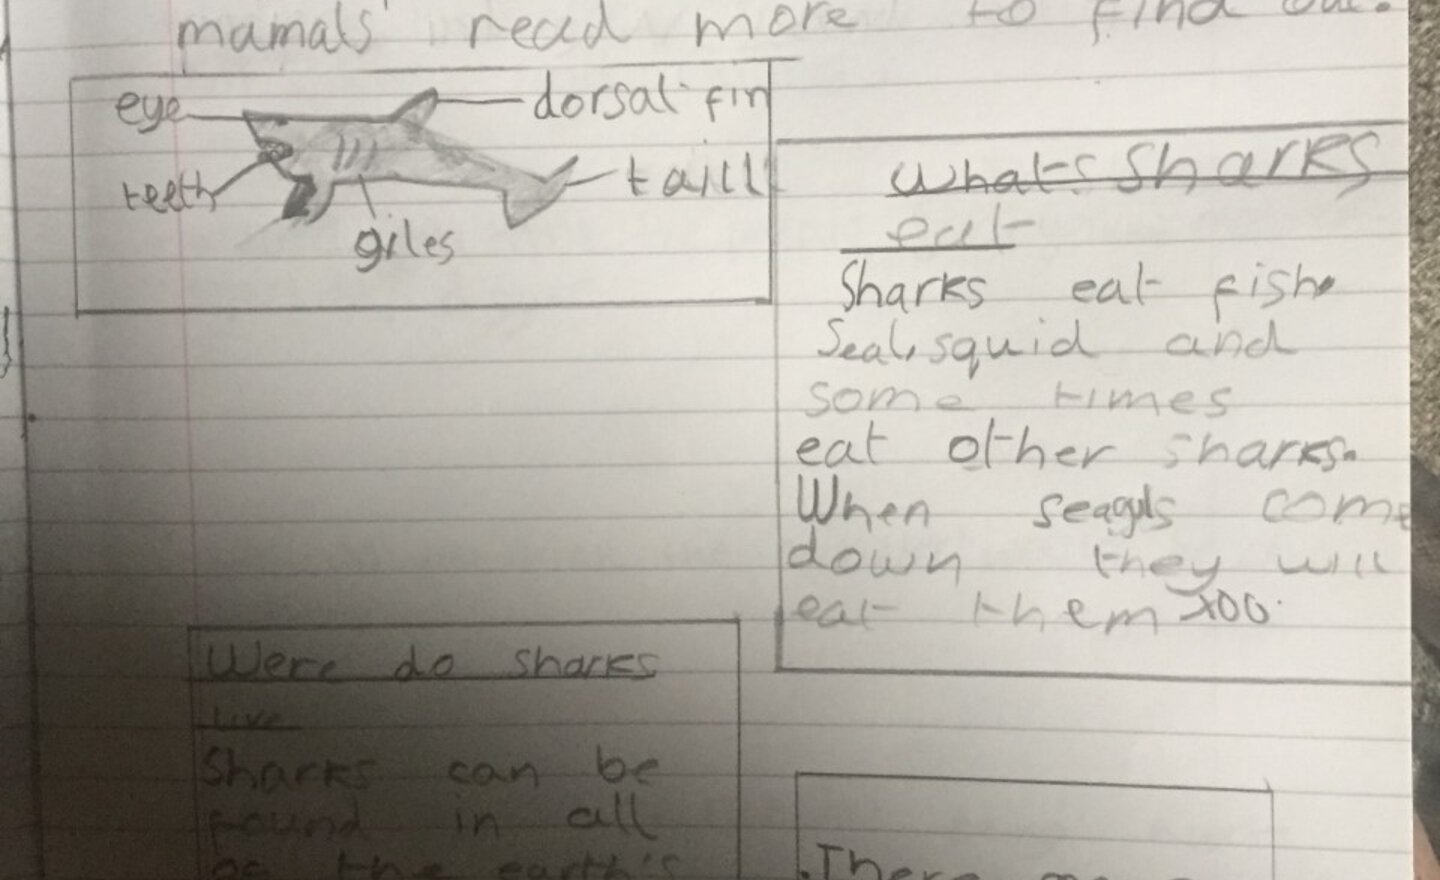 mamals read more to find out.
eye
dorsal fin
teeth
taill
giles
Whats Sharks
eat
Sharks eat fish,
Seal, squid and
some times
eat other sharks.
When seaguls come
down they will
eat them too.
Were do sharks
live
Sharks can be
found in all
of the earth's
There